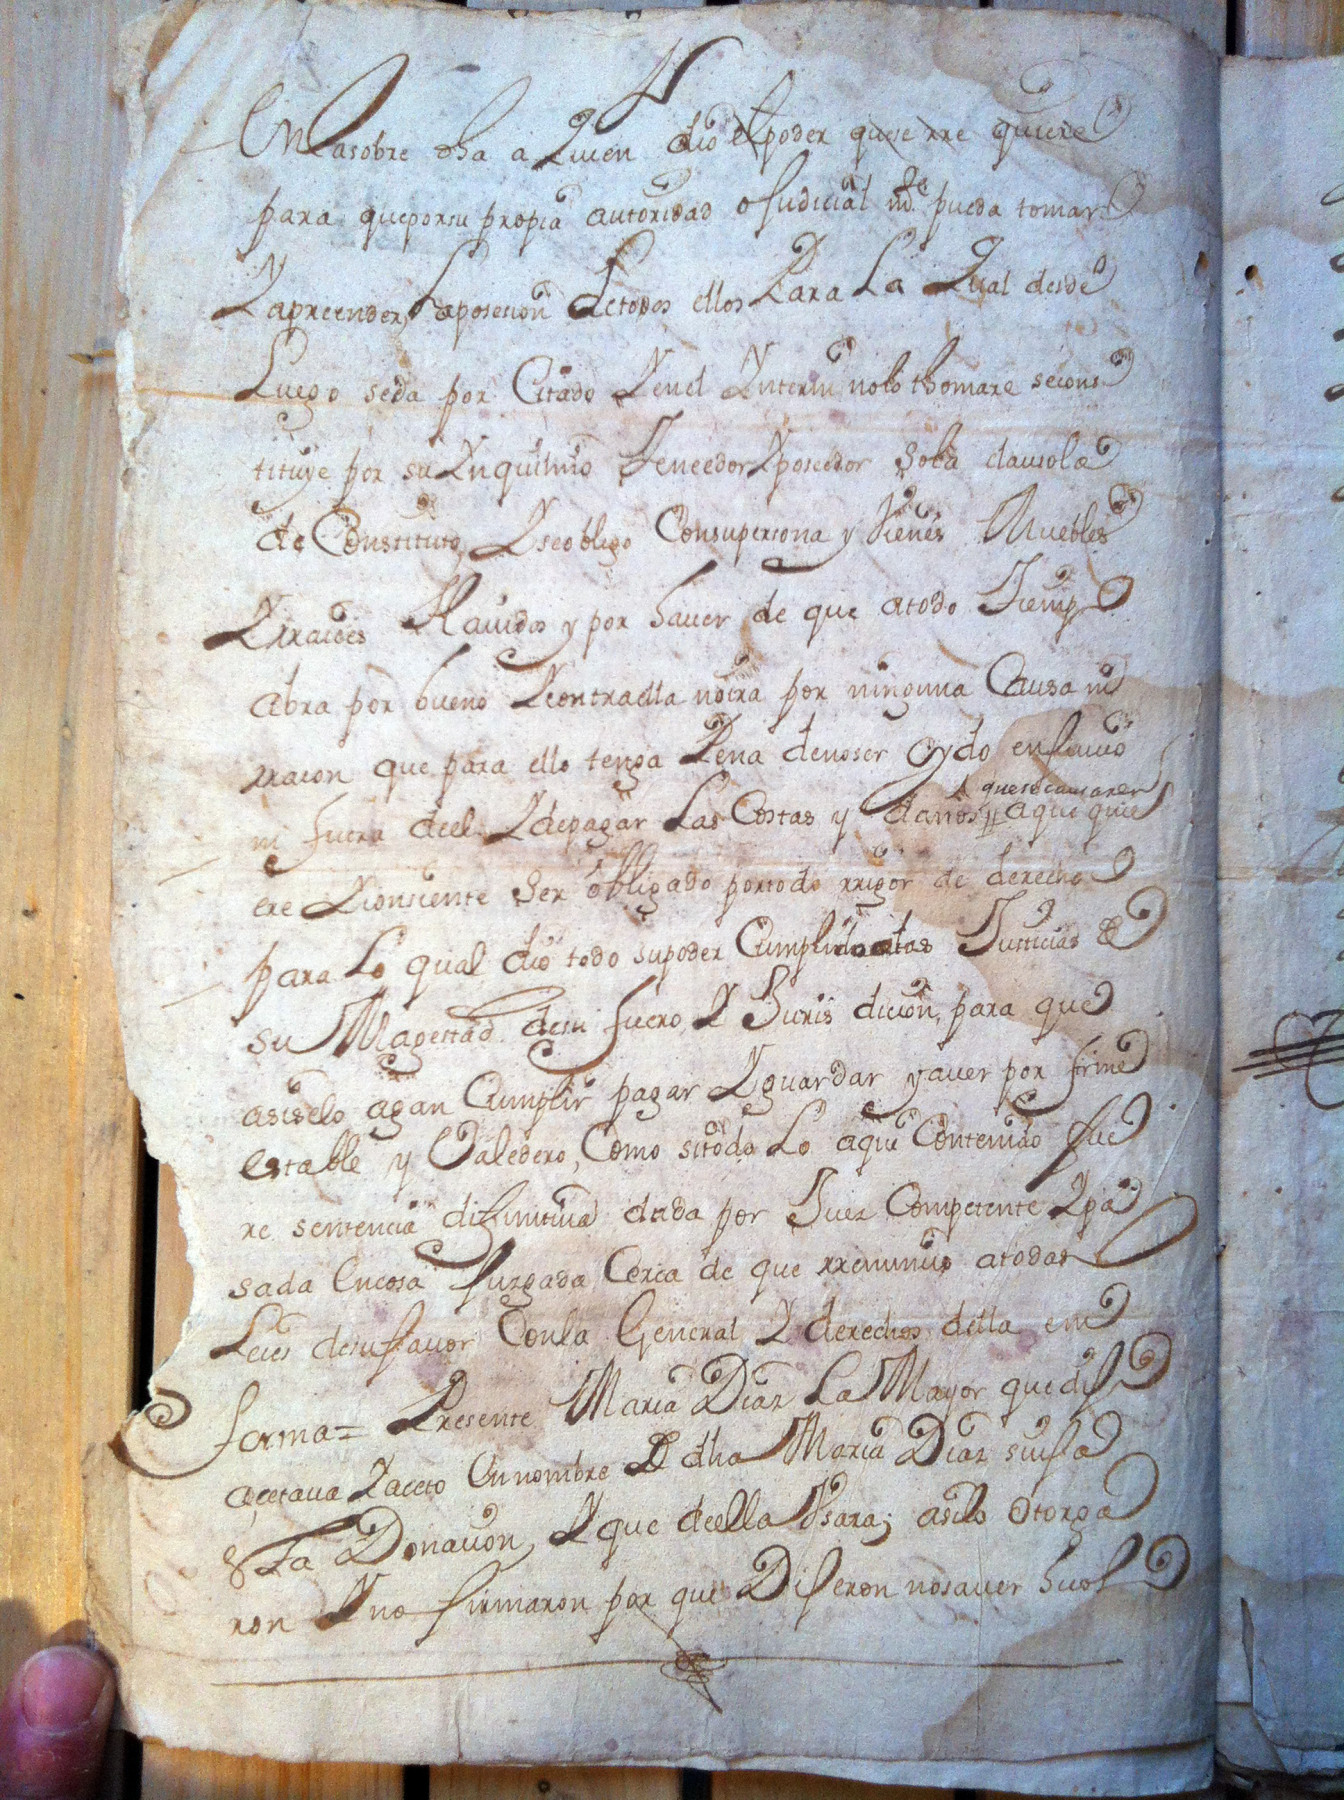 En la sobre dha a quien dio el poder que se rre quiere
para que por su propia autoridad o Judicial mte pueda tomar
Y apreender La posecion de todos ellos Para La Qual desde
Luego se da por Citado Y en el Ynterin no lo thomare se cons
tituye por su Ynquilino Teneedor Y poseedor so la clausola
de Constituto Y se obligo Con su persona y Vienes Muebles
Y Rraices Havidos y por haver de que a todo Tiempo
abra por bueno Y contra ella no ira por ninguna Causa ni
rraçon que para ello tenga Pena de no ser oydo en Juiçio
que se causaren
ni fuera de el Y de pagar Las Costas y daños a que qui
ere Y consiente Ser obligado por todo rrigor de derecho
para Lo qual dio todo su poder Cumplido a las Justicias de
su Magestad de su fuero Y Jurisdicion, para que
asi se lo agan Cumplir pagar Y guardar y aver por firme
estable y Valedero, Como si todo Lo aqui Contenido fue
re sentencia difinitiva dada por Juez Competente Y pa
sada en cosa Juzgada Cerca de que rrenuncio a todas
Leies de su favor Con la General Y derechos della en
forma = Presente Maria Diaz La Mayor que dijo
acetava Y aceto En nombre de dha Maria Diaz su ija
esta Donacion, Y que de ella Vsara; asi lo otorga
ron Y no firmaron por que Dijeron no saver hiçol